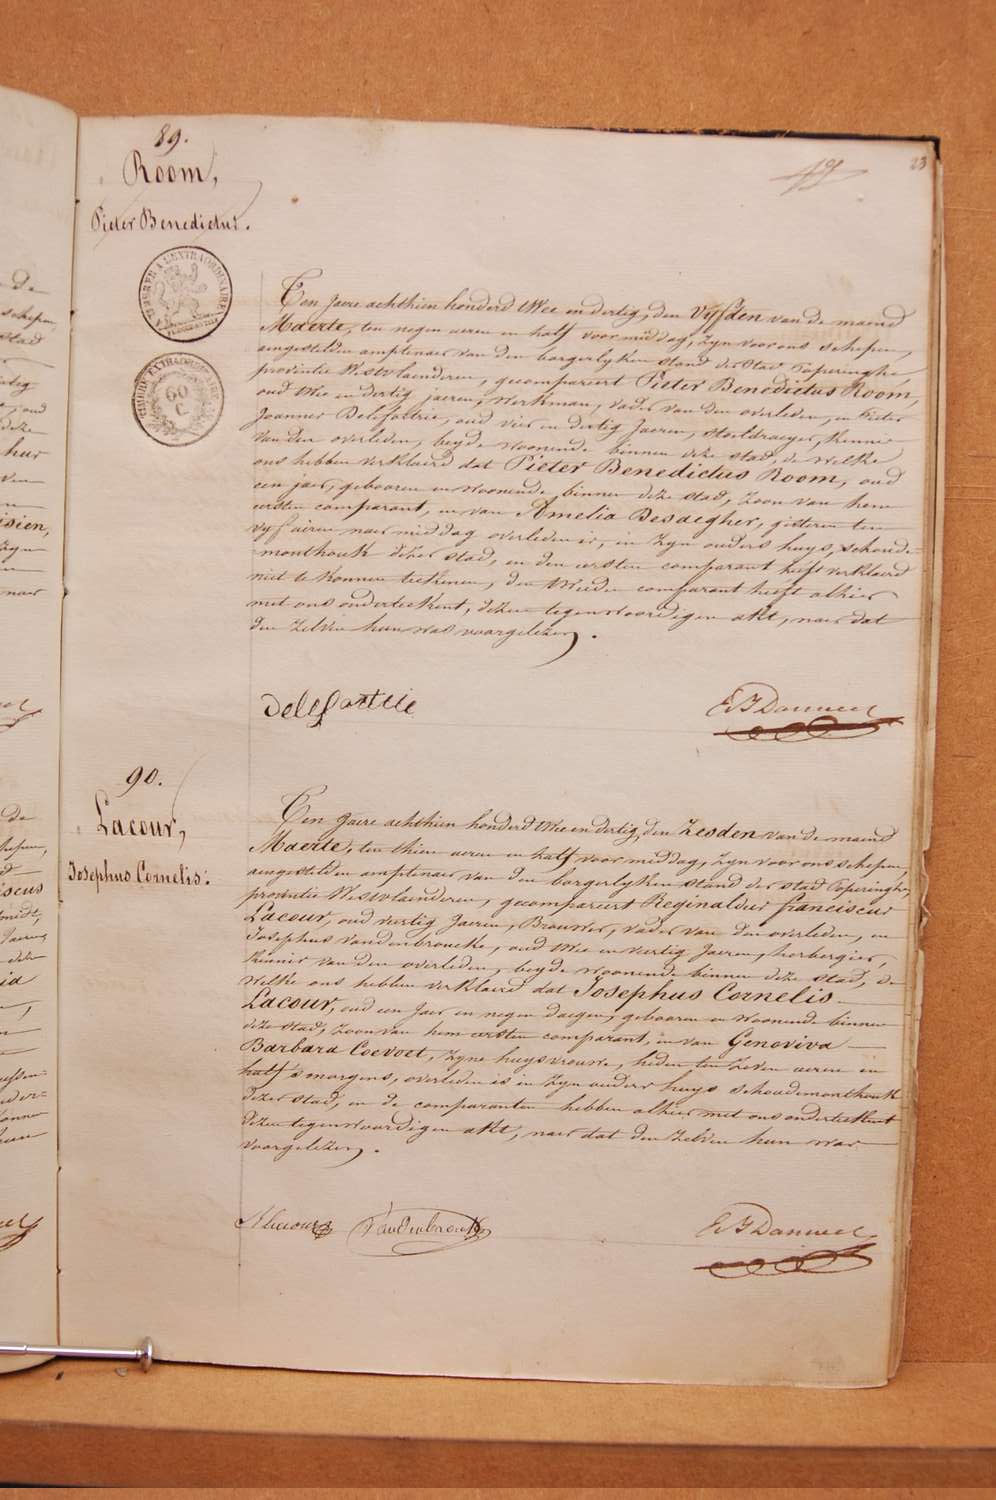 23
89.
Room,
Pieter Benedictus.
TIMBRE A L'EXTRAORDINAIRE
TIMBRE EXTRAORDINAIRE
60
C
Ten Jaere achthien honderd twee en dertig, den Vyfden van de maend
Maerte, ten negen aeren en half voor middag, zyn voor ons schepen,
aengestelden amptenaer van den borgerlyken stand der Stad Poperinghe
provintie Westvlaenderen, gecompareert Pieter Benedictus Room,
oud twee en dertig jaeren, werkman, vader van den overleden, en Pieter
Joannes Delefortrie, oud vier en dertig Jaeren, stoeldraeyer, kennis
van den overleden, beyde woonende binnen deze stad, de welke
ons hebben verklaerd dat Pieter Benedictus Room, oud
een jaer, gebooren en woonende binnen deze stad, zoon van hem
eersten comparant, en van Amelia Desaegher, gisteren ten
vyf aeren naer middag overleden is, in zyn ouders huys, schoude-
monthouk dezer stad, en den eersten comparant heeft verklaerd
niet te konnen teekenen, den tweeden comparant heeft alhier
met ons onderteekent, dezen tegenwoordigen akt, naer dat
den zelven hun was voorgelezen.
delefortrie
90.
Lacour,
Josephus Cornelis.
Ten Jaere achthien honderd twee en dertig, den Zesden van de maend
Maerte, ten thien aeren en half voor middag, zyn voor ons schepen,
aengestelden amptenaer van den borgerlyken stand der stad Poperinghe,
provintie Westvlaenderen, gecompareert Reginaldus franciscus
Lacour, oud veertig Jaeren, Brouwer, vader van den overleden, en
Josephus Vandenbroucke, oud twee en veertig Jaeren, herbergier,
kennis van den overleden, beyde woonende binnen deze stad, de
welke ons hebben verklaerd dat Josephus Cornelis
Lacour, oud een Jaer en negen daegen, gebooren en woonende binnen
deze stad, zoon van hem eersten comparant, en van Genoviva
Barbara Coevoet, zyne huysvrouwe, heden ten zeven aeren en
half 's morgens, overleden is in zyn ouders huys schoudemonthouk
dezer stad, en de comparanten hebben alhier met ons onderteekent
dezen tegenwoordigen akt, naer dat den zelven hun was
voorgelezen.
Vandenbroucke